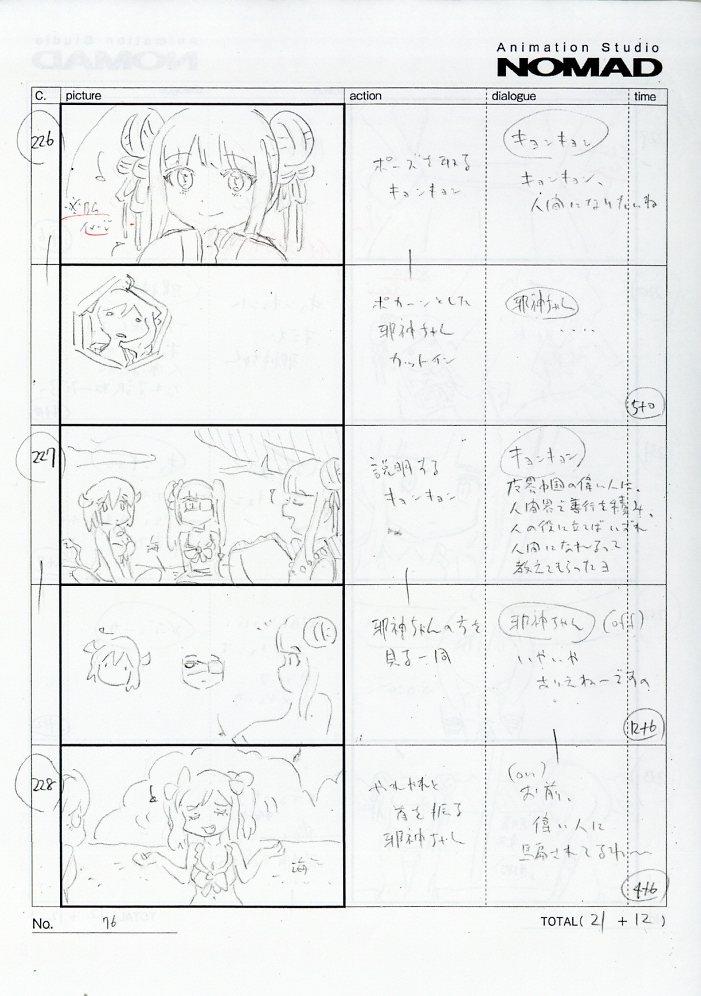 Animation Studio
NOMAD
C. picture action dialogue time
226
ポーズを取る
キョンキョン
キョンキョン
キョンキョン、
人間になりたいね
ポカーンとした
邪神ちゃん
カットイン
邪神ちゃん
‥‥
5+0
227
説明する
キョンキョン
キョンキョン
魔界中国の偉い人は、
人間界で善行を積み、
人の役に立てばいずれ
人間になれるって
教えてもらったヨ
邪神ちゃんの方を
見る一同
邪神ちゃん (off)
いやいや
ですの
12+6
228
海
やれやれと
首を振る
邪神ちゃん
(on)
お前、
偉い人に
騙されてるわ〜
4+6
No. 76
TOTAL( 21 + 12 )